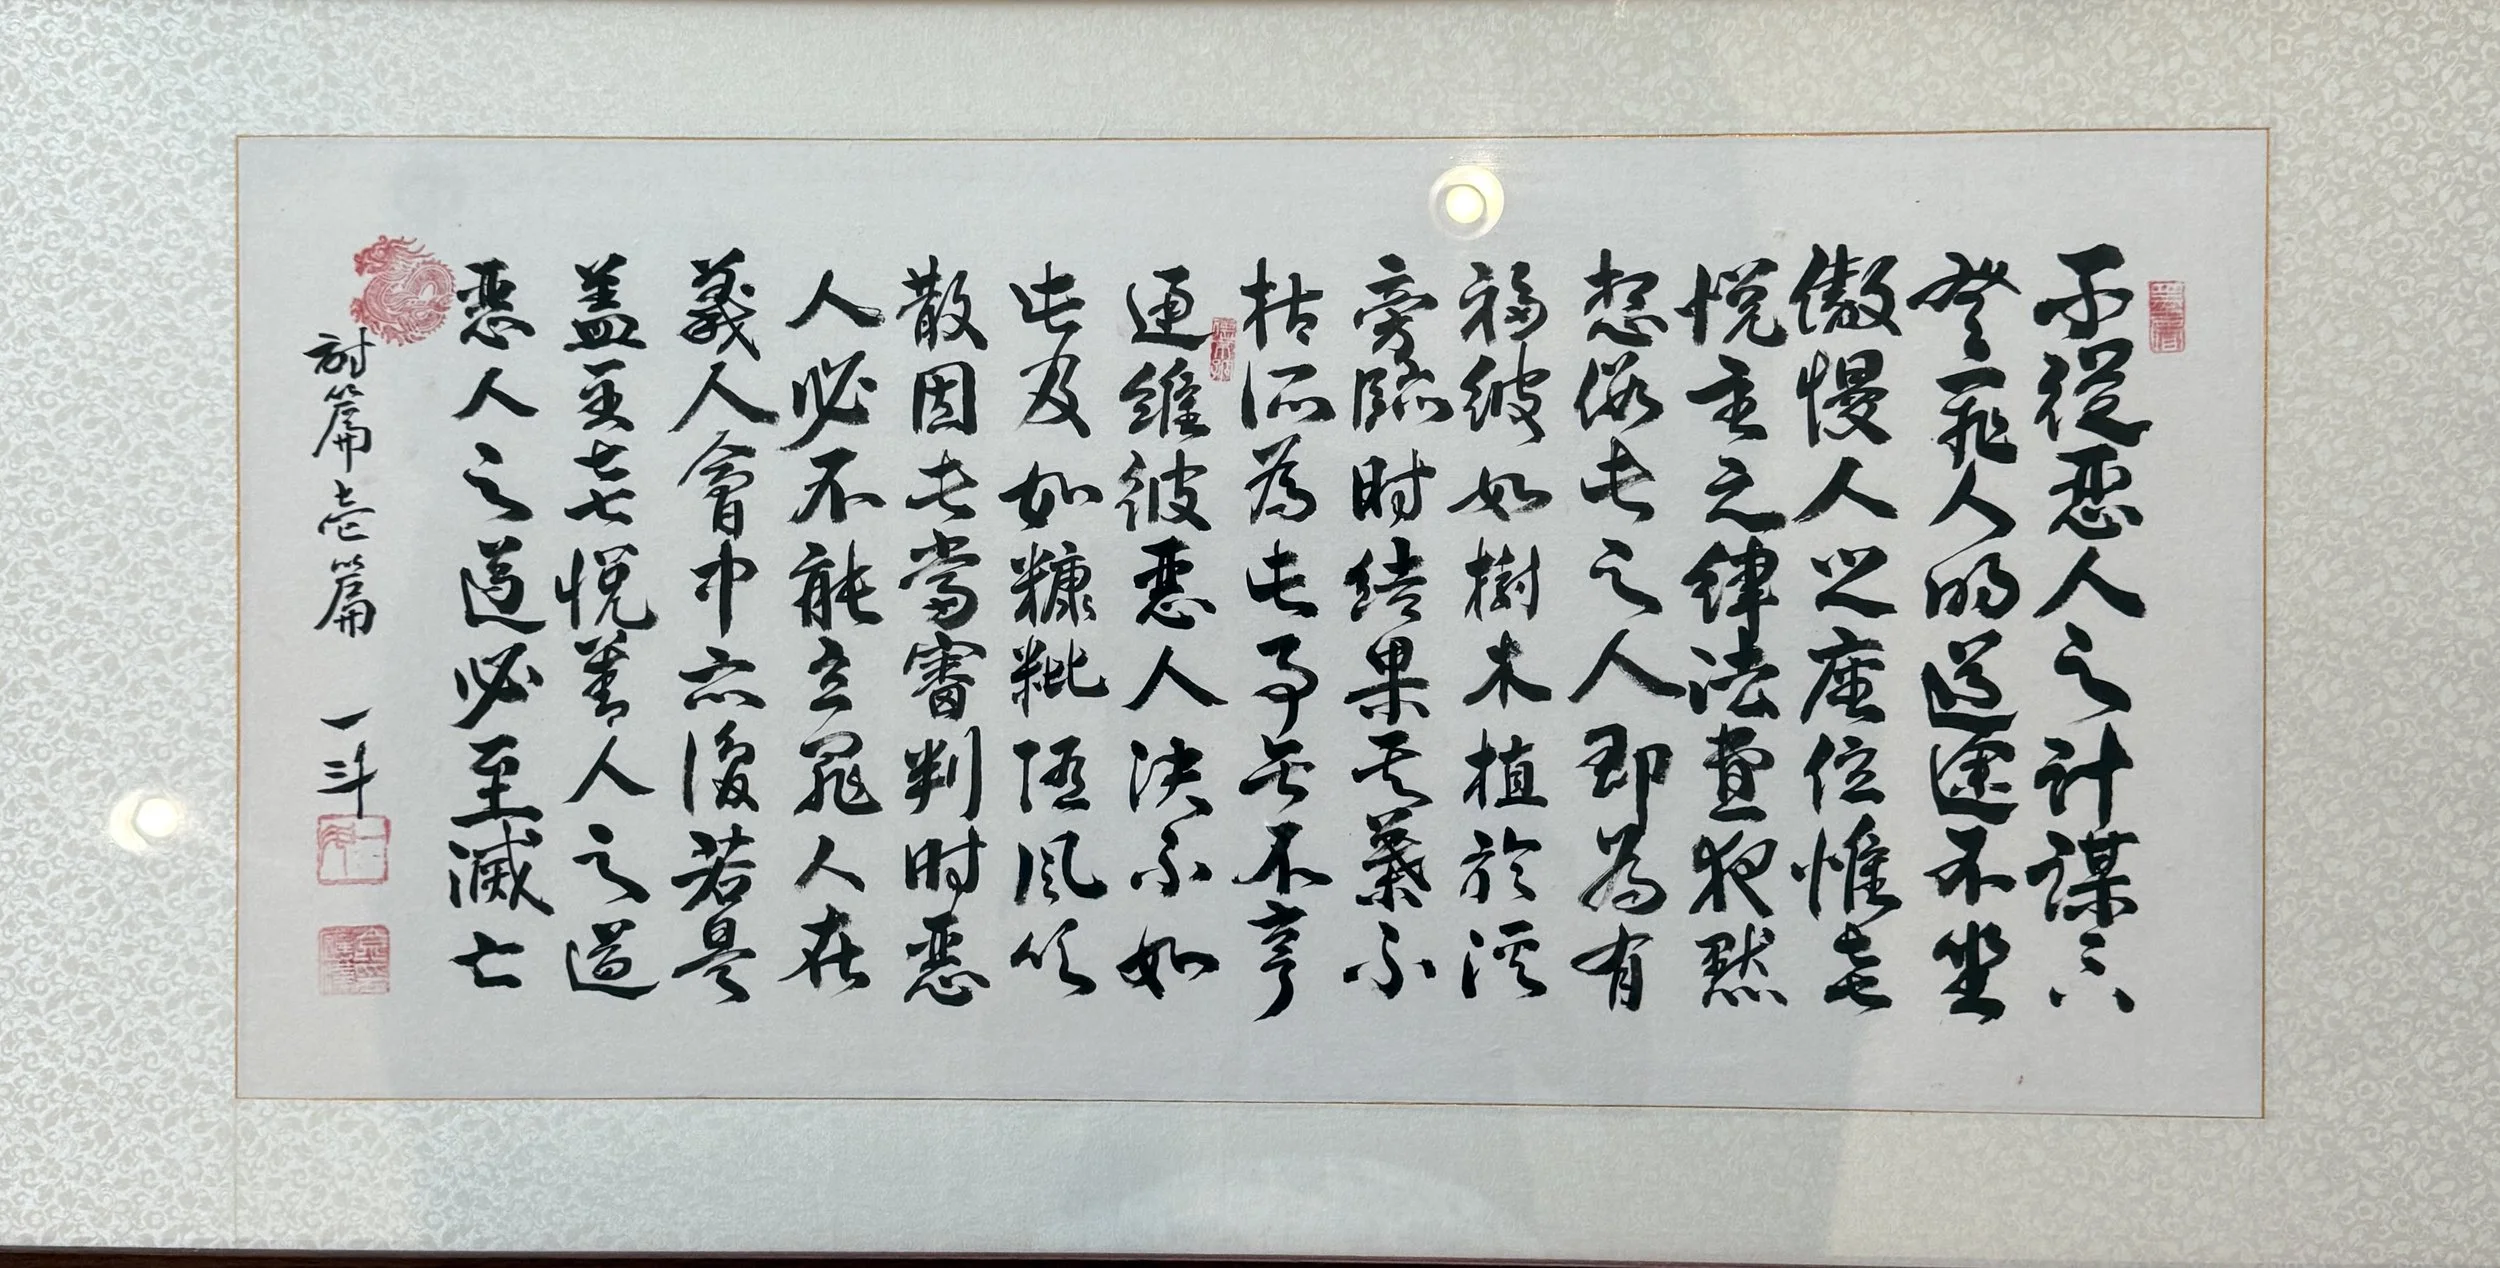 不從惡人之計謀不
登罪人的道途不坐
傲慢人之座位惟喜
悅主之律法晝夜默
想像此之人即為有
福彼如樹木植於溪
旁臨時結果其葉不
枯所為此事無不亨
通維彼惡人決不如
此及如糠粃隨風吹
散因此當審判時惡
人必不能立罪人在
義人會中亦復若是
盖主喜悅善人之道
惡人之道必至滅亡
詩篇壹篇 一斗